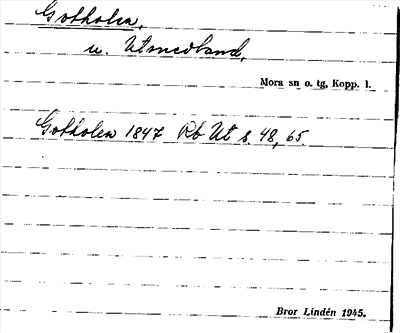 Gotholen,
u. Utmedland,
Mora sn o. tg, Kopp. l.
Gotholen 1847 Rb Ut s. 48, 65.
Bror Lindén 1945.